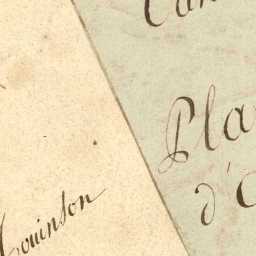 Can
Pla
d'
ouinson